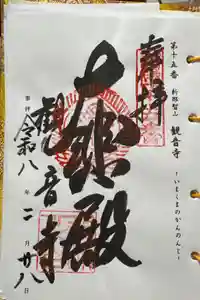 第十五番
新那智山
観音寺
～いまくまのかんのんじ～
奉拝
大悲殿
観音寺
奉拝 令和八年二月廿八